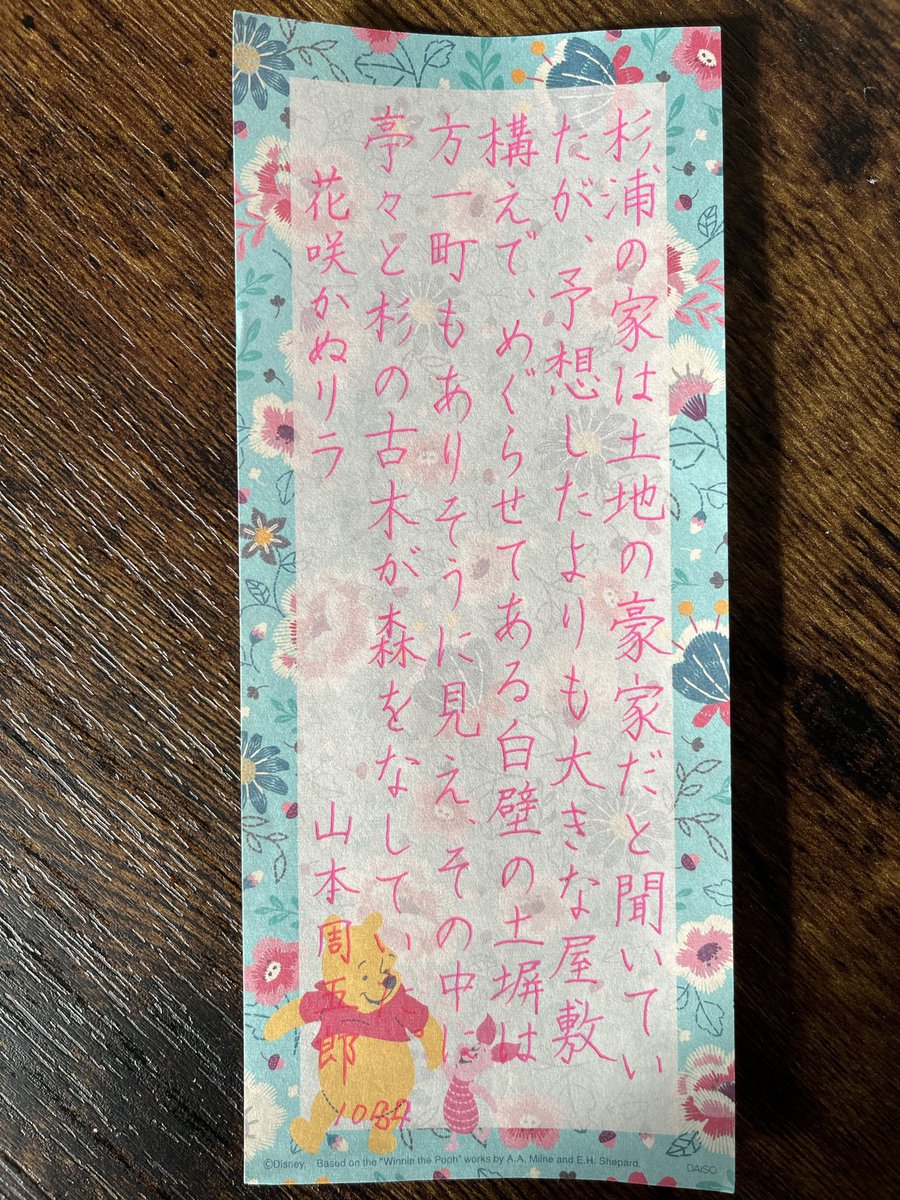 杉浦の家は土地の豪家だと聞いてい
たが、予想したよりも大きな屋敷
構えで、めぐらせてある白壁の土塀は
方一町もありそうに見え、その中に
亭々と杉の古木が森をなしてい
花咲かぬリラ 山本周五郎
©Disney. Based on the "Winnie the Pooh" works by A.A. Milne and E.H. Shepard.
DAISO